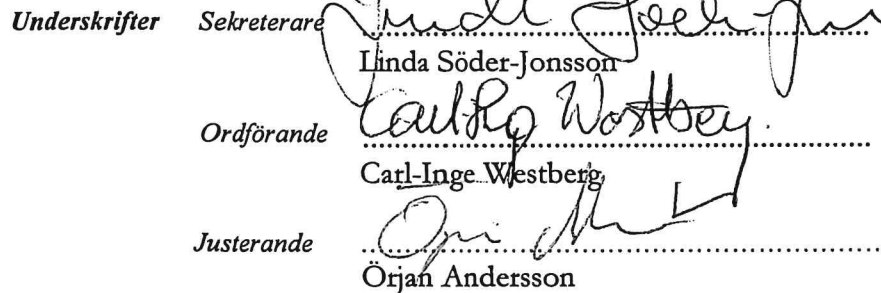 Underskrifter Sekreterare
Linda Söder-Jonsson
Ordförande Carl-Ing Westberg
Carl-Inge Westberg
Justerande
Örjan Andersson